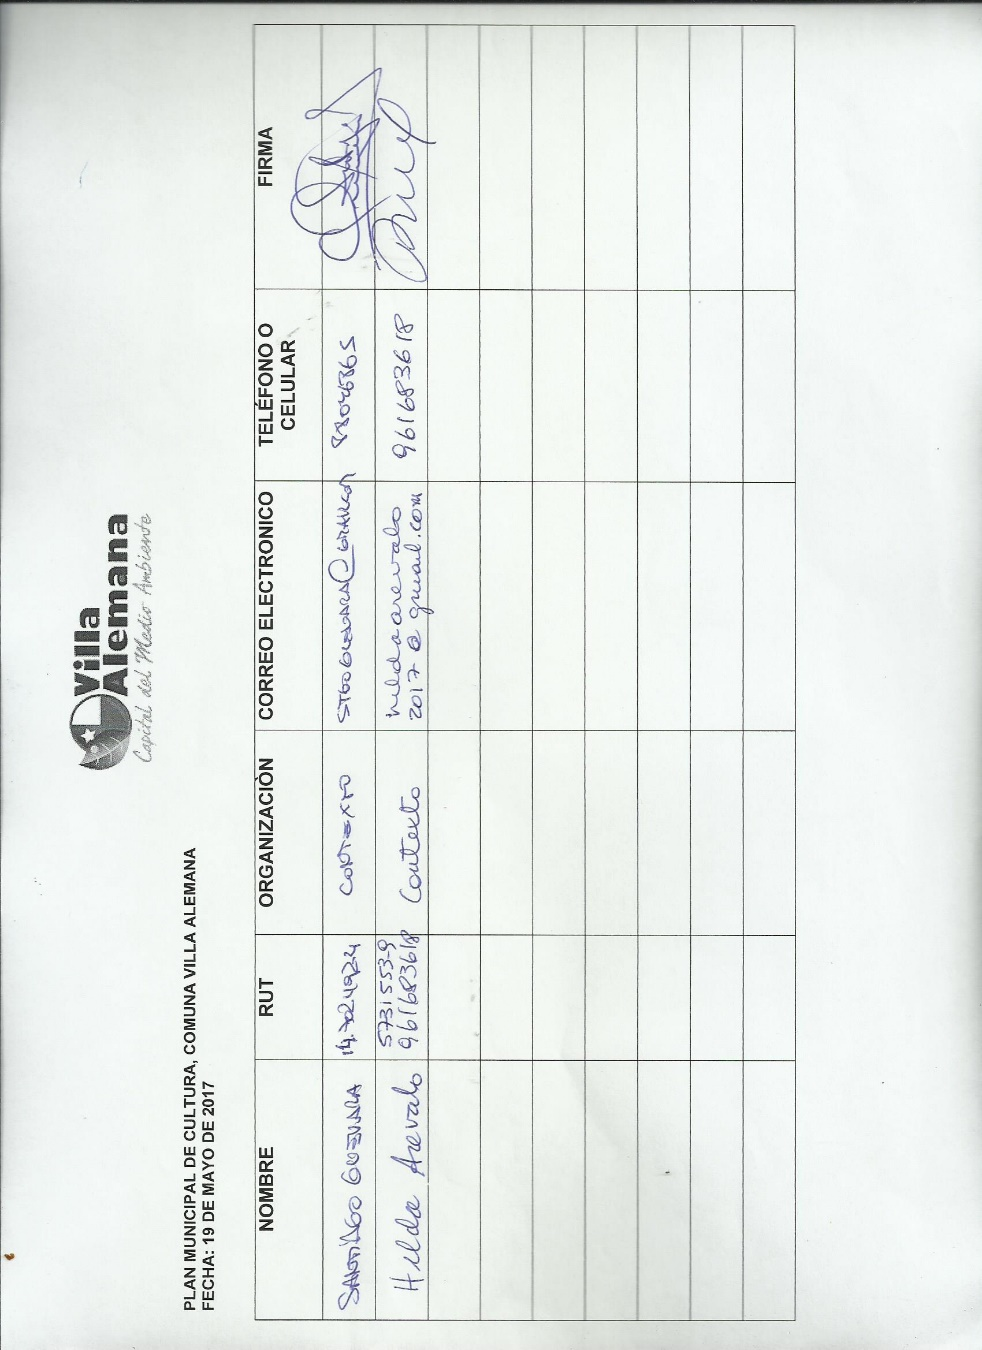 Villa
Alemana
Capital del Medio Ambiente
PLAN MUNICIPAL DE CULTURA, COMUNA VILLA ALEMANA
FECHA: 19 DE MAYO DE 2017
NOMBRE RUT ORGANIZACIÒN CORREO ELECTRONICO TELÉFONO O CELULAR FIRMA
SANTIAGO GUEVARA CONTEXTO
Hilda Arevalo 5731553-9 961683618 Contexto hildaarevalo 2017@gmail.com 961683618